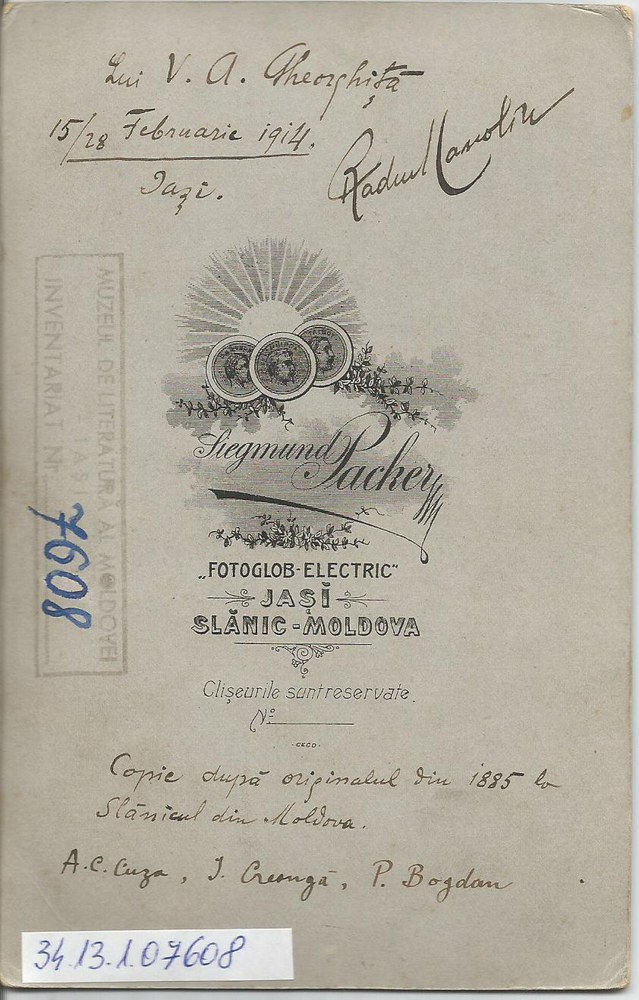 Lui V. A. Gheorghiță
15/28 Februarie 1914.
Iași.
Radu Manoliu
MUZEUL DE LITERATURĂ AL MOLDOVEI
IAȘI
INVENTARIAT Nr.
7608
Siegmund Packer
„FOTOGLOB-ELECTRIC“
JAȘI
SLĂNIC-MOLDOVA
Clișeurile sunt reservate.
No
Copie după originalul din 1885 la
Slănicul din Moldova.
A.C. Cuza, I. Creangă, P. Bogdan
34.13.1.07608